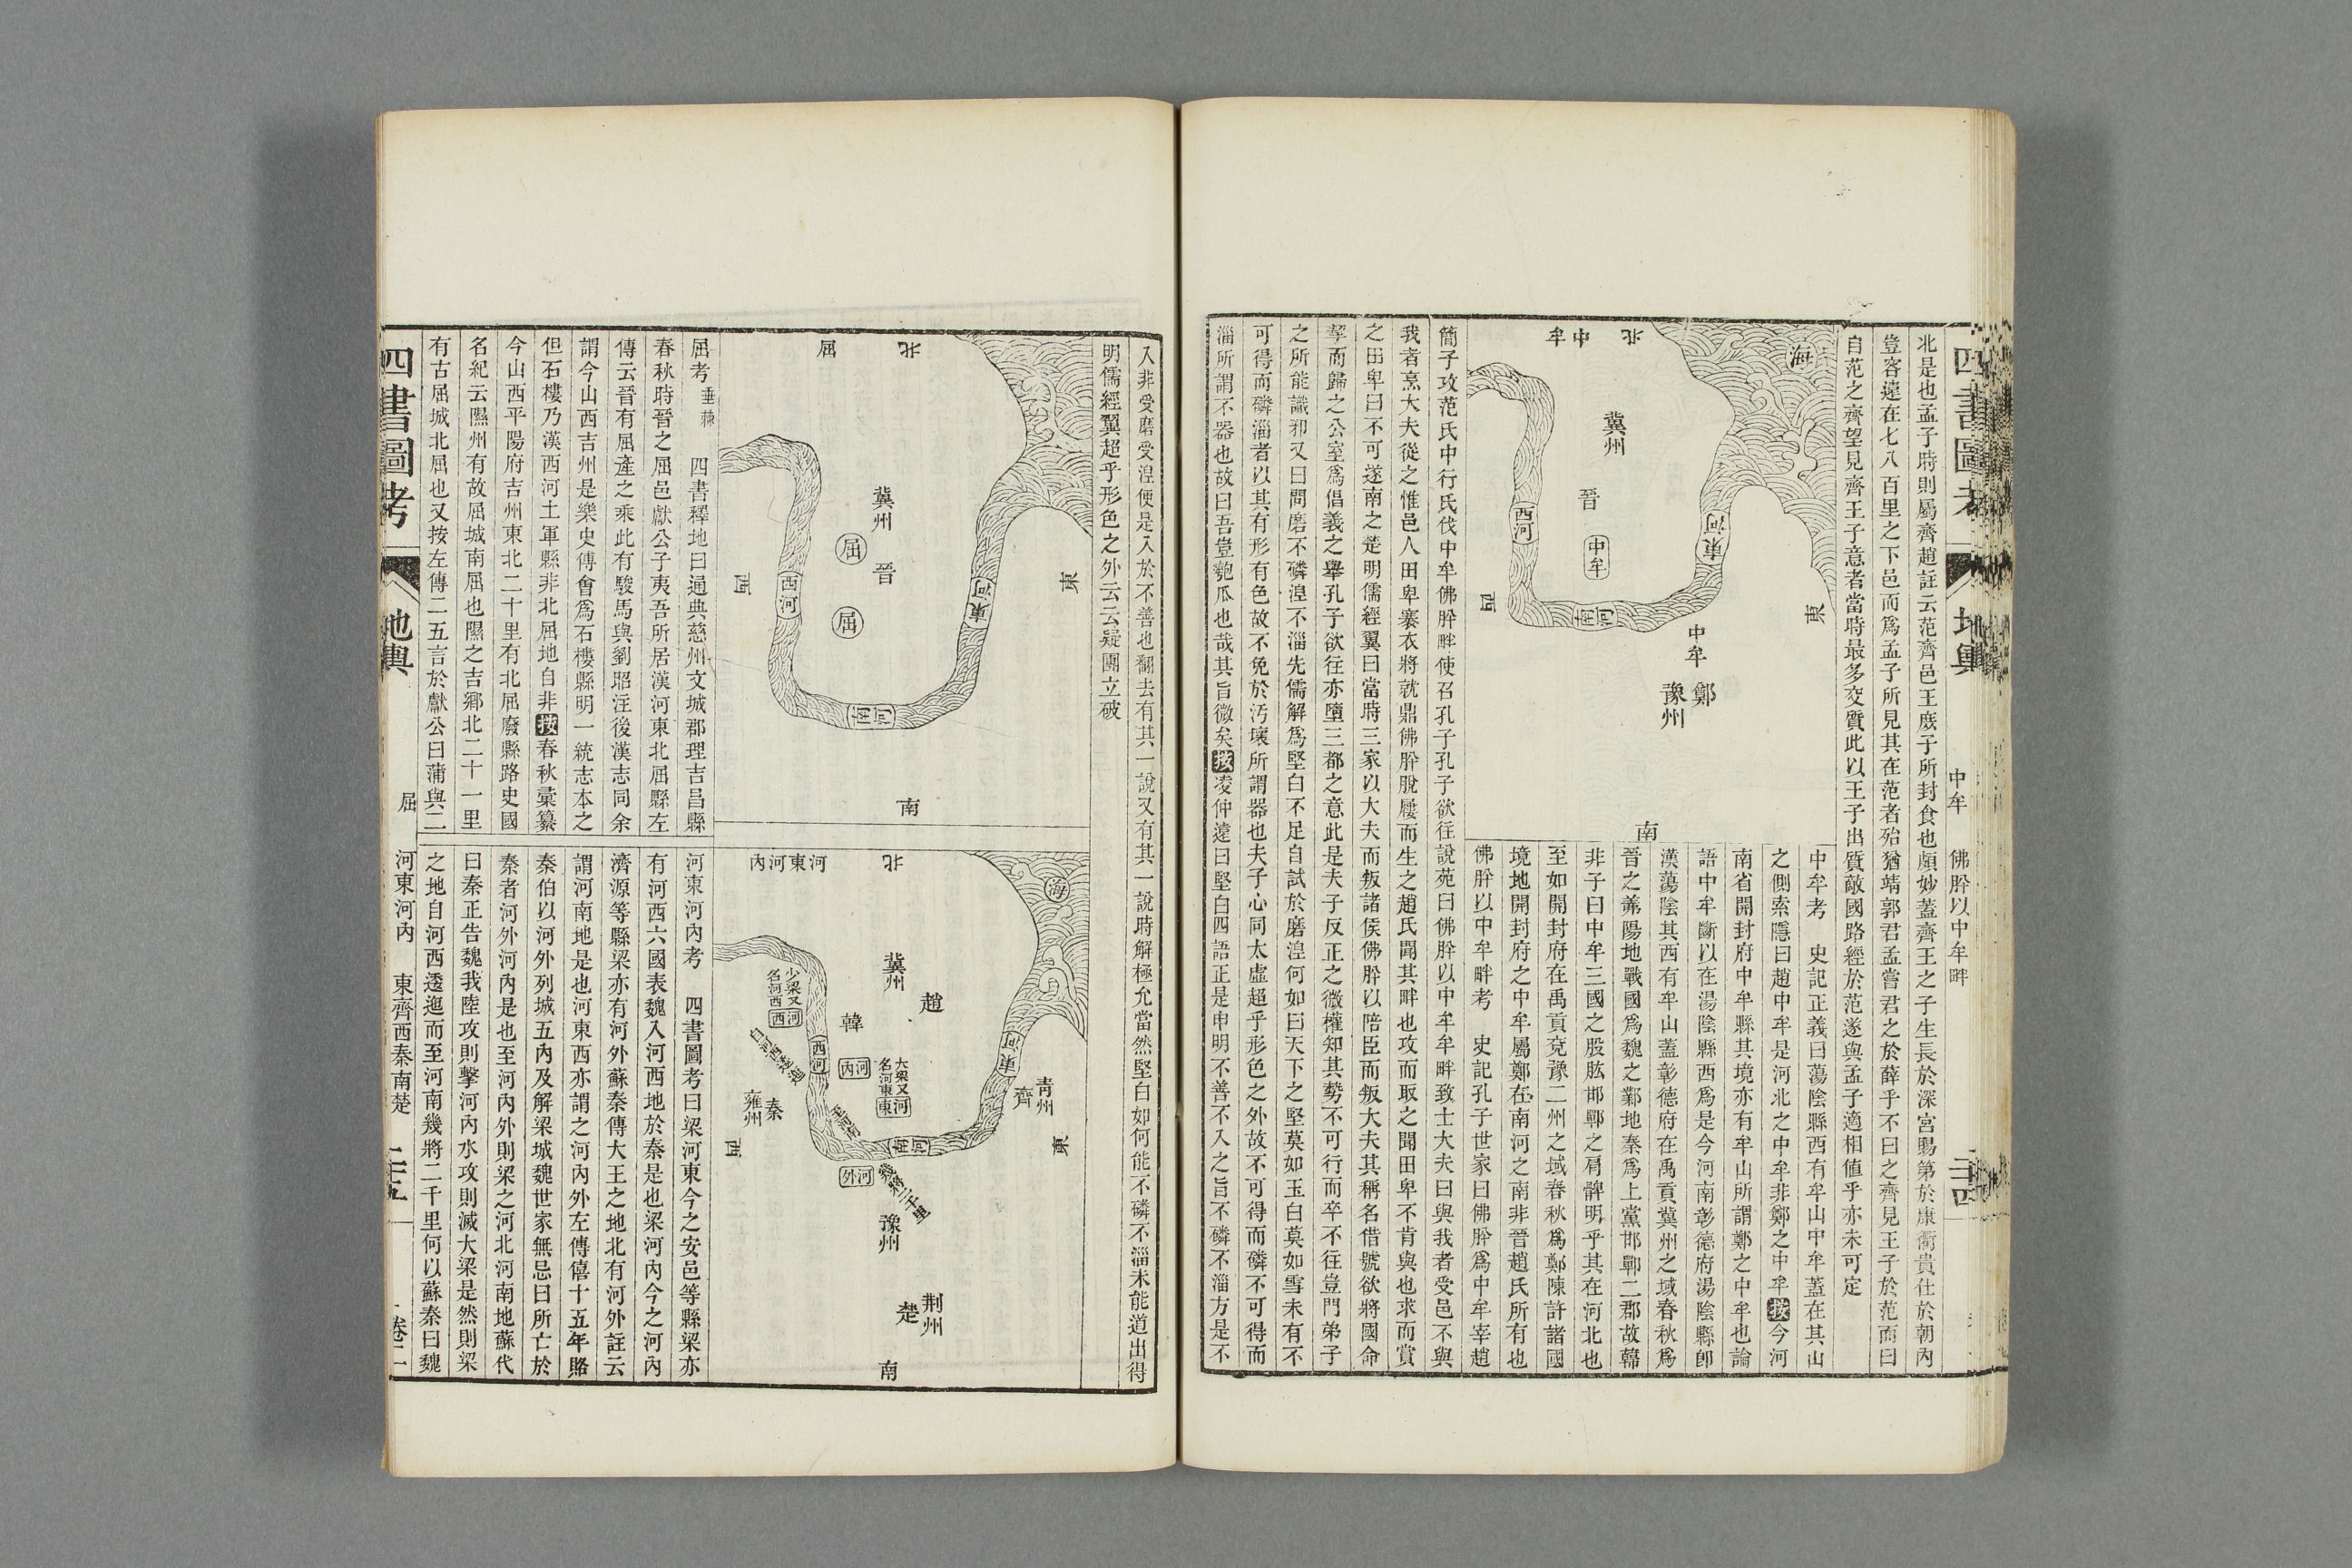 四書圖考
地輿
中牟
佛肸以中牟畔
北是也孟子時則屬齊趙註云范齊邑王庶子所封食也頗妙蓋齊王之子生長於深宮賜第於康衢貴仕於朝內
豈容遠在七八百里之下邑而爲孟子所見其在范者殆猶靖郭君孟嘗君之於薛乎不曰之齊見王子於范而曰
自范之齊望見齊王子意者當時最多交質此以王子出質敵國路經於范遂與孟子適相値乎亦未可定
中牟
北
海
冀州
晉
中牟
西河
東河
南河
西
東
中牟
鄭
豫州
南
中牟考 史記正義曰蕩陰縣西有牟山中牟蓋在其山
之側索隱曰趙中牟是河北之中牟非鄭之中牟按今河
南省開封府中牟縣其境亦有牟山所謂鄭之中牟也論
語中牟斷以在湯陰縣西爲是今河南彰德府湯陰縣卽
漢蕩陰其西有牟山蓋彰德府在禹貢冀州之域春秋爲
晉之東陽地戰國爲魏之鄴地秦爲上黨邯鄲二郡故韓
非子曰中牟三國之股肱邯鄲之肩髀明乎其在河北也
至如開封府在禹貢兗豫二州之域春秋爲鄭陳許諸國
境地開封府之中牟屬鄭在南河之南非晉趙氏所有也
佛肸以中牟畔考 史記孔子世家曰佛肸爲中牟宰趙
簡子攻范氏中行氏伐中牟佛肸畔使召孔子孔子欲往說苑曰佛肸以中牟牟畔致士大夫曰與我者受邑不與
我者烹大夫從之惟邑人田卑褰衣將就鼎佛肸脫屨而生之趙氏聞其畔也攻而取之聞田卑不肯與也求而賞
之田卑曰不可遂南之楚明儒經翼曰當時三家以大夫而叛諸侯佛肸以陪臣而叛大夫其稱名借號欲將國命
挈而歸之公室爲倡義之舉孔子欲往亦墮三都之意此是夫子反正之微權知其勢不可行而卒不往豈門弟子
之所能識邪又曰問磨不磷湼不淄先儒解爲堅白不足自試於磨湼何如曰天下之堅莫如玉白莫如雪未有不
可得而磷淄者以其有形有色故不免於汚壞所謂器也夫子心同太虛超乎形色之外故不可得而磷不可得而
淄所謂不器也故曰吾豈匏瓜也哉其旨微矣按凌仲遠曰堅白四語正是申明不善不入之旨不磷不淄方是不
入非受磨受湼便是入於不善也翻去有其一說又有其一說時解極允當然堅白如何能不磷不淄未能道出得
明儒經翼超乎形色之外云云疑團立破
屈
北
冀州
屈
晉
屈
西河
東河
南河
西
東
南
屈考 垂棘 四書釋地曰通典慈州文城郡理吉昌縣
春秋時晉之屈邑獻公子夷吾所居漢河東北屈縣左
傳云晉有屈產之乘此有駿馬與劉昭注後漢志同余
謂今山西吉州是樂史傅會爲石樓縣明一統志本之
但石樓乃漢西河土軍縣非北屈地自非按春秋彙纂
今山西平陽府吉州東北二十里有北屈廢縣路史國
名紀云隰州有故屈城南屈也隰之吉鄉北二十一里
有古屈城北屈也又按左傳二五言於獻公曰蒲與二
河東河內
北
海
冀州
趙
韓
少梁又名河西
河西
西河
河內
大梁又名河東
河東
東河
自河西逶迤
至河南
南河
河外
幾將二千里
青州
齊
秦
雍州
西
東
豫州
荆州
楚
南
河東河內考 四書圖考曰梁河東今之安邑等縣梁亦
有河西六國表魏入河西地於秦是也梁河內今之河內
濟源等縣梁亦有河外蘇秦傳大王之地北有河外註云
謂河南地是也河東西亦謂之河內外左傳僖十五年賂
秦伯以河外列城五內及解梁城魏世家無忌曰所亡於
秦者河外河內是也至河內外則梁之河北河南地蘇代
曰秦正告魏我陸攻則擊河內水攻則滅大梁是然則梁
之地自河西逶迤而至河南幾將二千里何以蘇秦曰魏
四書圖考
地輿
屈
河東河內
東齊西秦南楚
卷二